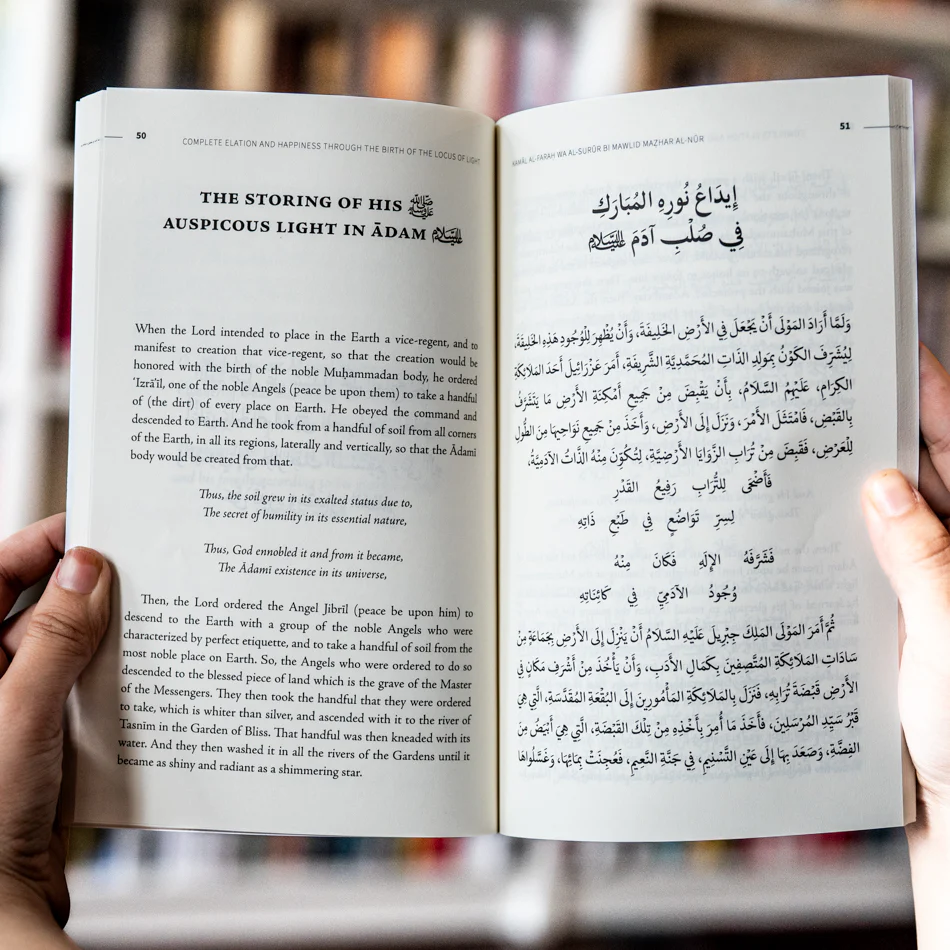 50
COMPLETE ELATION AND HAPPINESS THROUGH THE BIRTH OF THE LOCUS OF LIGHT
THE STORING OF HIS ﷺ
AUSPICOUS LIGHT IN ĀDAM
When the Lord intended to place in the Earth a vice-regent, and to
manifest to creation that vice-regent, so that the creation would be
honored with the birth of the noble Muḥammadan body, he ordered
'Izrā'īl, one of the noble Angels (peace be upon them) to take a handful
of (the dirt) of every place on Earth. He obeyed the command and
descended to Earth. And he took from a handful of soil from all corners
of the Earth, in all its regions, laterally and vertically, so that the Ādamī
body would be created from that.
Thus, the soil grew in its exalted status due to,
The secret of humility in its essential nature,
Thus, God ennobled it and from it became,
The Ādamī existence in its universe,
Then, the Lord ordered the Angel Jibrīl (peace be upon him) to
descend to the Earth with a group of the noble Angels who were
characterized by perfect etiquette, and to take a handful of soil from the
most noble place on Earth. So, the Angels who were ordered to do so
descended to the blessed piece of land which is the grave of the Master
of the Messengers. They then took the handful that they were ordered
to take, which is whiter than silver, and ascended with it to the river of
Tasnīm in the Garden of Bliss. That handful was then kneaded with its
water. And they then washed it in all the rivers of the Gardens until it
became as shiny and radiant as a shimmering star.
51
KAMĀL AL-FARAH WA AL-SURŪR BI MAWLID MAZHAR AL-NŪR
إِيدَاعُ نُورِهِ المُبَارَكِ
فِي صُلْبِ آدَمَ
وَلَمَّا أَرَادَ المَوْلَى أَنْ يَجْعَلَ فِي الأَرْضِ الخَلِيفَةَ، وَأَنْ يُظْهِرَ لِلْوُجُودِ هَذِهِ الخَلِيفَةَ،
لِيُشَرِّفَ الكَوْنُ بِمَولِدِ الذَّاتِ المُحَمَّدِيَّةِ الشَّرِيفَةِ، أَمَرَ عَزْرَائِيلَ أَحَدَ المَلَائِكَةِ
الكِرَامِ، عَلَيْهِمُ السَّلَامُ، بِأَنْ يَقْبَضَ مِنْ جَمِيعِ أَمْكِنَةِ الأَرْضِ مَا يَتَشَرَّفُ
بِالقَبْضِ، فَامْتَثَلَ الأَمْرَ، وَنَزَلَ إِلَى الأَرْضِ، وَأَخَذَ مِنْ جَمِيعِ نَوَاحِيهَا مِنَ الطُّولِ
لِلْعَرْضِ، فَقَبِضَ مِنْ تُرَابِ الزَّوَايَا الأَرْضِيَّةِ، لِتُكَوِّنَ مِنْهُ الذَّاتُ الآدَمِيَّةُ،
فَأَضْحَى لِلتُّرَابِ رَفِيعُ القَدْرِ
لِسِرِّ تَوَاضُعٍ فِي طَبْعِ ذَاتِهِ
فَشَرَّفَهُ الإِلَهُ فَكَانَ مِنْهُ
وُجُودُ الآدَمِيِّ فِي كَائِنَاتِهِ
ثُمَّ أَمَرَ المَوْلَى المَلِكَ جِبْرِيلَ عَلَيْهِ السَّلَامُ أَنْ يَنْزِلَ إِلَى الأَرْضِ بِجَمَاعَةٍ مِنْ
سَادَاتِ المَلَائِكَةِ المُتَّصِفِينَ بِكَمَالِ الأَدَبِ، وَأَنْ يَأْخُذَ مِنْ أَشْرَفِ مَكَانٍ فِي
الأَرْضِ قَبْضَةَ تُرَابِهِ، فَنَزَلَ بِالمَلَائِكَةِ المَأْمُورِينَ إِلَى البُقْعَةِ المُقَدَّسَةِ، الَّتِي هِيَ
قَبْرُ سَيِّدِ المُرْسَلِينَ، فَأَخَذَ مَا أُمِرَ بِأَخْذِهِ مِنْ تِلْكَ القَبْضَةِ، الَّتِي هِيَ أَبْيَضُ مِنَ
الفِضَّةِ، وَصَعَدَ بِهَا إِلَى عَيْنِ التَّسْنِيمِ، فِي جَنَّةِ النَّعِيمِ، فَعُجِنَتْ بِمَائِهَا، وَغَسَّلُواهَا